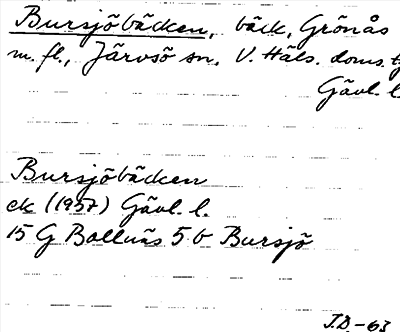 Bursjöbäcken, bäck, Grönås
m. fl., Järvsö sn, V. Häls. doms.
Gävl. l.
Bursjöbäcken
ek (1957) Gävl. l.
15 G Bollnäs 5 b Bursjö
J.D. -63